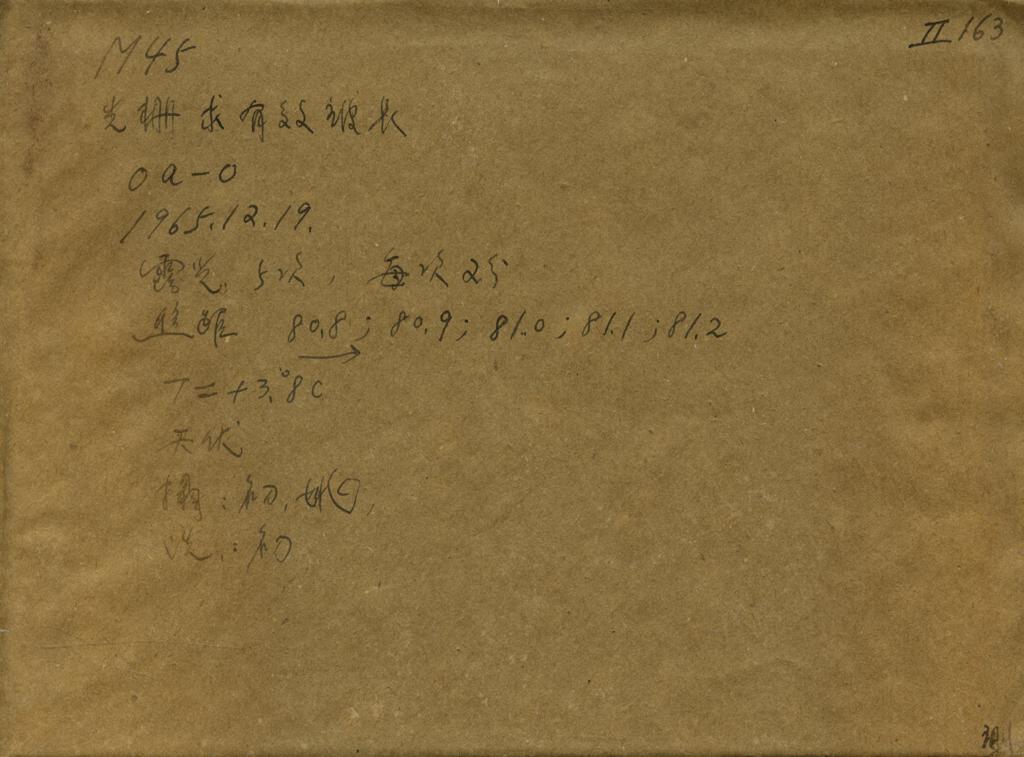 II 163
M45
光栅求有效波长
Oa-O
1965.12.19.
露光 5次, 每次2分
焦距 80.8; 80.9; 81.0; 81.1; 81.2
→
T=+3.°8C
天伏
摄:初,姚
洗:初